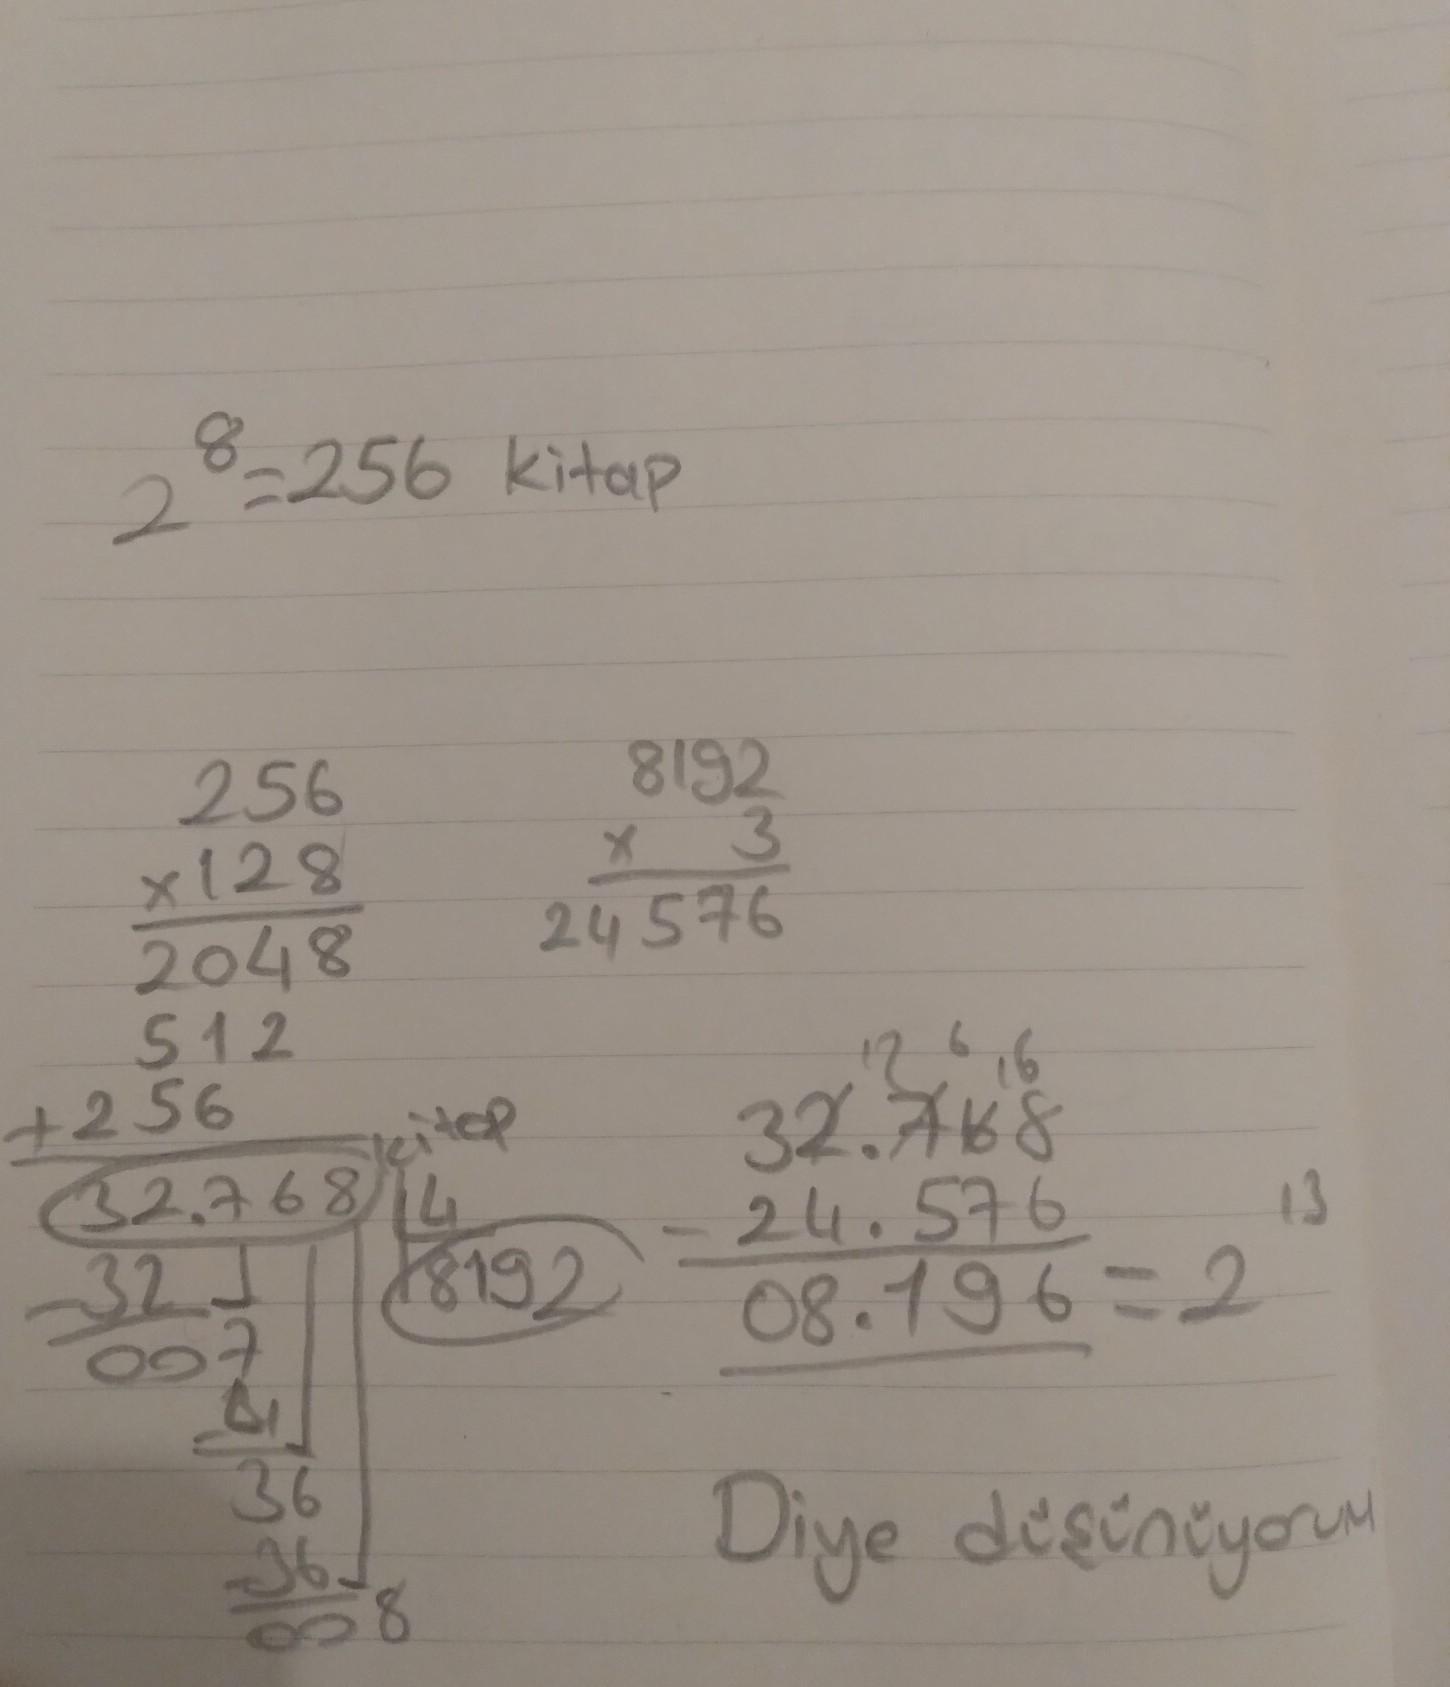 2⁸=256 kitap
256
×128
2048
512
+256
32.768 kitap
4
8192
-32
007
-4
36
-36
008
8192
× 3
24576
12 6 16
32.768
-24.576
08.196 = 2¹³
Diye düşünüyorum